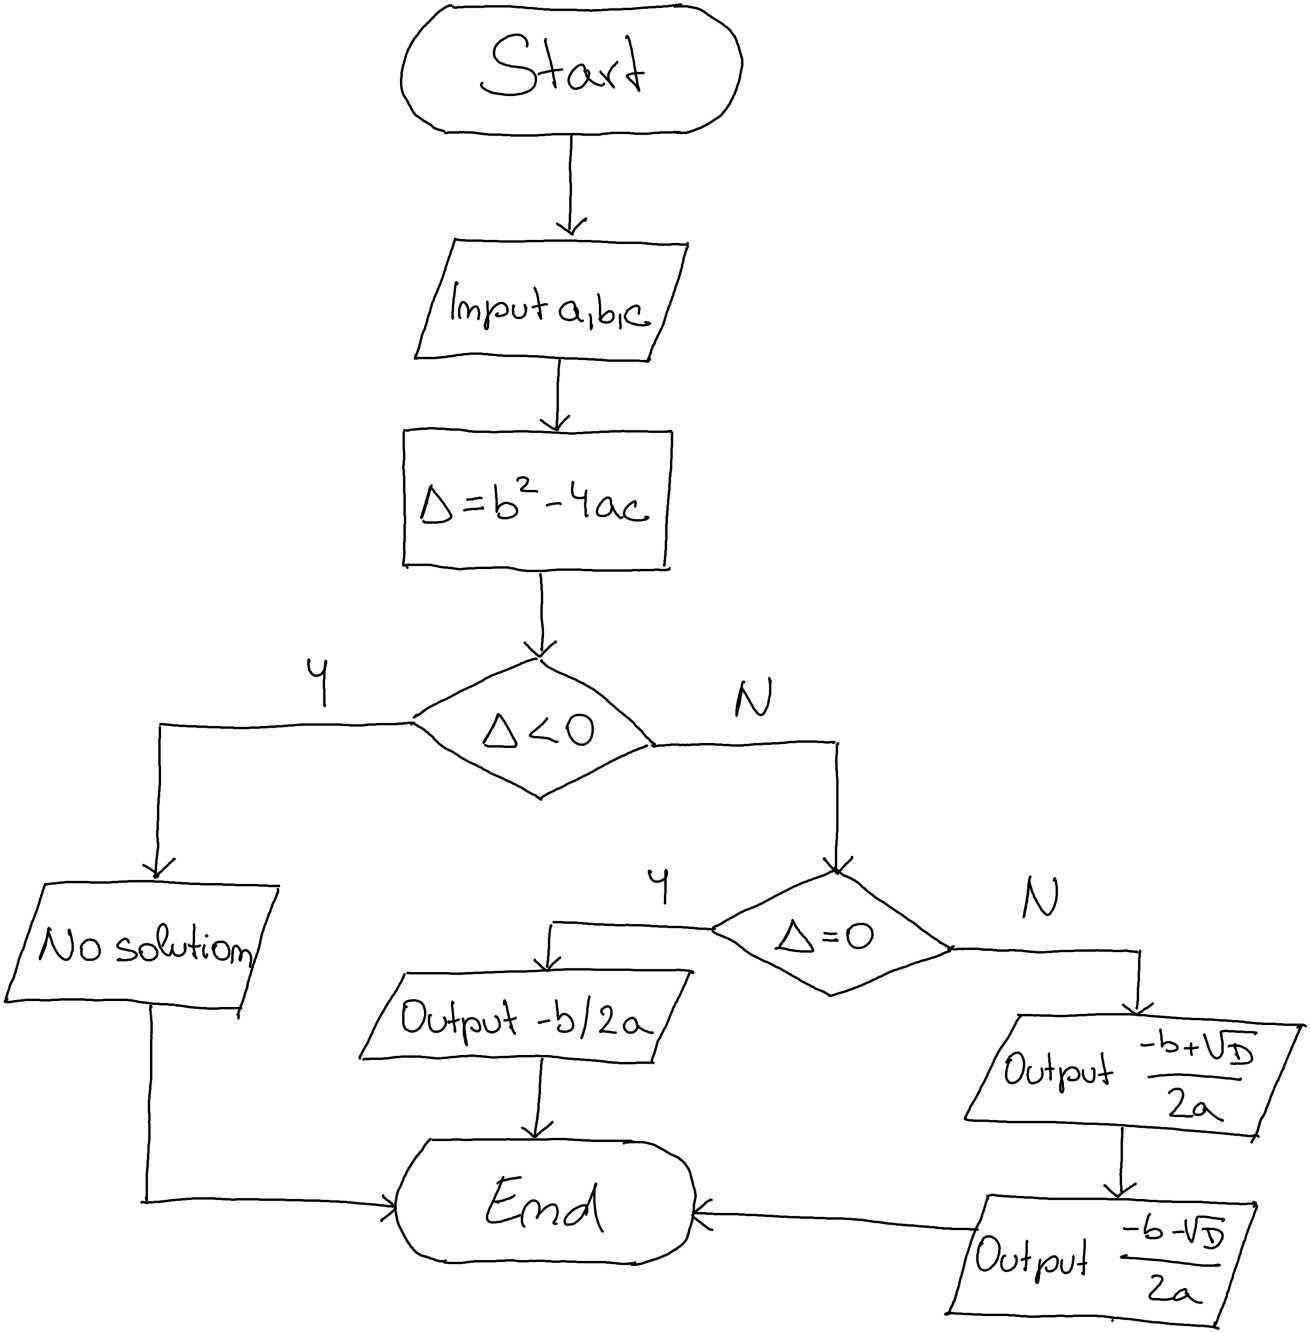 Start
Input a,b,c
Δ=b²-4ac
Y
N
Δ<0
Y
N
No solution
Δ=0
Output -b/2a
Output (-b+√D)/2a
End
Output (-b-√D)/2a